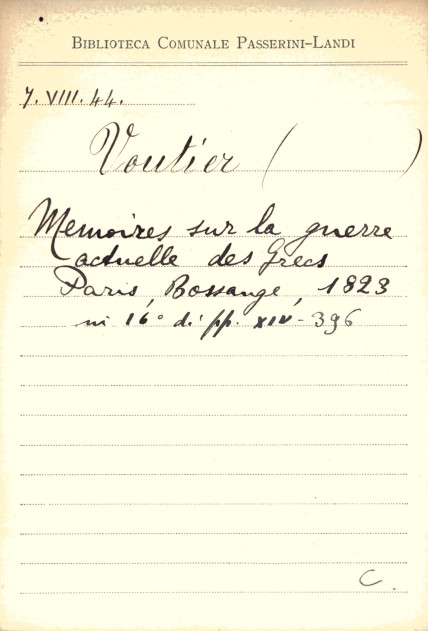 BIBLIOTECA COMUNALE PASSERINI-LANDI
7.VIII.44.
Voutier ( )
Memoires sur la guerre
actuelle des Grecs
Paris, Bossange, 1823
in 16° di pp. XIV-396
C.